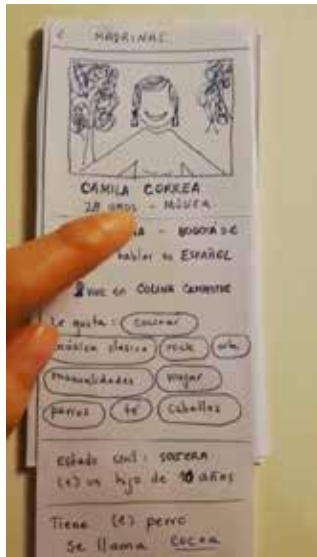 < MADRINAS
CAMILA CORREA
28 años - MÚSICA
- BOGOTÁ D.C
hablar en ESPAÑOL
Vive en COLINA CAMPESTRE
Le gusta: cocinar
música clásica rock arte
manualidades viajar
perros té caballos
Estado civil: SOLTERA
(1) un hijo de 10 años
Tiene (1) perro
Se llama COCOA